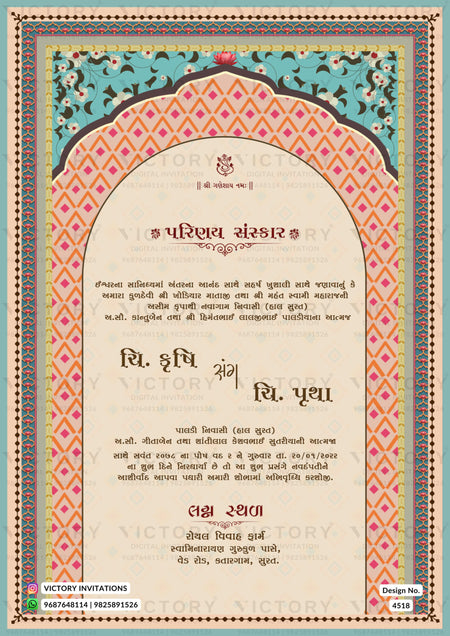 || શ્રી ગણેશાય નમઃ ||
પરિણય સંસ્કાર
ઈશ્વરના સાનિધ્યમાં અંતરના આનંદ સાથે સહર્ષ ખુશાલી સાથે જણાવાનું કે
અમારા કુળદેવી શ્રી ખોડિયાર માતાજી તથા શ્રી મહંત સ્વામી મહારાજની
અસીમ કૃપાથી નવાગામ નિવાસી (હાલ સુરત)
અ.સૌ. કાન્તુબેન તથા શ્રી હિંમતભાઈ લાલજીભાઈ પાલડીયાના આત્મજ
ચિ. કૃષિ
સંગ
ચિ. પૃથા
પાલડી નિવાસી (હાલ સુરત)
અ.સૌ. ગીતાબેન તથા શાંતીલાલ કેશવભાઈ સુતરીયાની આત્મજા
સાથે સવંત ૨૦૭૮ ના પોષ વદ ૨ ને ગુરુવાર તા. ૨૦/૦૧/૨૦૨૨
ના શુભ દિને નિરધાર્યા છે તો આ શુભ પ્રસંગે નવદંપતીને
આશીર્વાદ આપવા પધારી અમારી શોભામાં અભિવૃધ્ધિ કરશોજી.
લગ્ન સ્થળ
રોયલ વિવાહ ફાર્મ
સ્વામિનારાયણ ગુરુકુળ પાસે,
વેડ રોડ, કતારગામ, સુરત.
VICTORY INVITATIONS
9687648114 | 9825891526
Design No.
4518